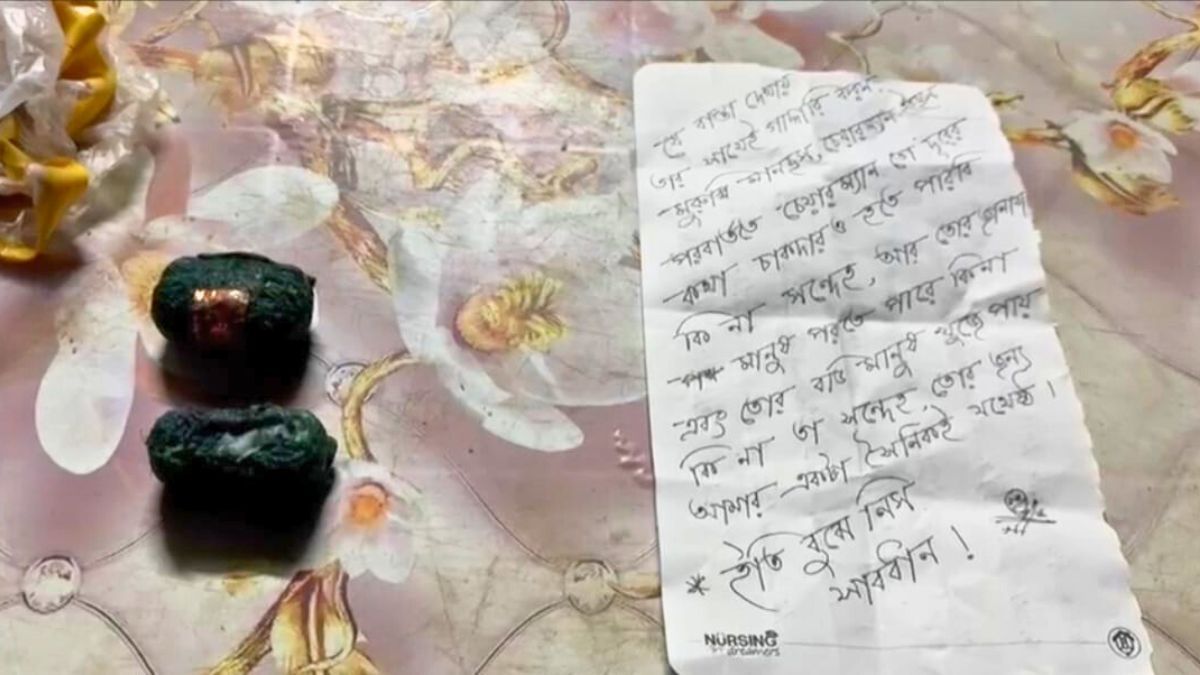 যে রাস্তা দেখায়
তার সাথেই গাদ্দারি করস
মুরুব্বি মানছস, চেয়ারম্যান
পরবর্তিতে চেয়ারম্যান তো দূরের
কথা চকিদার ও হতে পারবি
কি না সন্দেহ, আর তোর জানাযা
মানুষ পরতে পারে কি না
এবং তোর বডি মানুষ খুজে পায়
কি না তা সন্দেহ, তোর জন্য
আমার একটা সৈনিকই যথেষ্ঠ।
* ইতি বুঝে নিস
সাবধান!
NURSING
dreamers